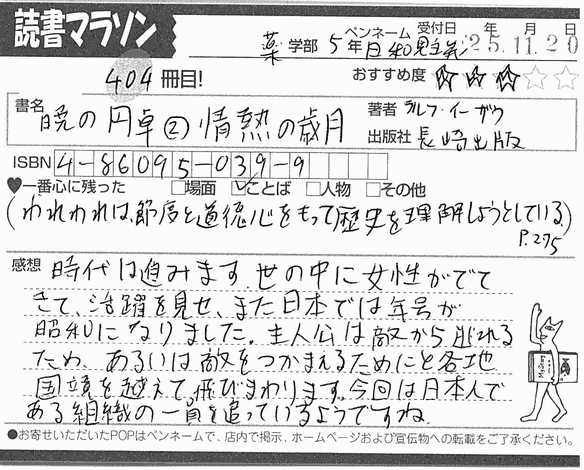 読書マラソン
薬 学部 5年 ペンネーム 日和見主義 受付日 25年 11月 20日
404 冊目!
おすすめ度 ★★★☆☆
書名 暁の円卓② 情熱の歳月
著者 ラルフ・イーザウ
出版社 長崎出版
ISBN 4-86095-039-9
♥一番心に残った □場面 ☑ことば □人物 □その他
(われわれは、節度と道徳心をもって歴史を理解しようとしている)
P.275
感想 時代は進みます。世の中に女性がでて
きて、活躍を見せ、また日本では年号が
昭和になりました。主人公は敵から逃れる
ため、あるいは敵をつかまえるためにと各地
国境を越えて飛びまわります。今回は日本人で
ある組織の一員を追っているようですね。
●お寄せいただいたPOPはペンネームで、店内で掲示、ホームページおよび宣伝物への転載をご了承ください。